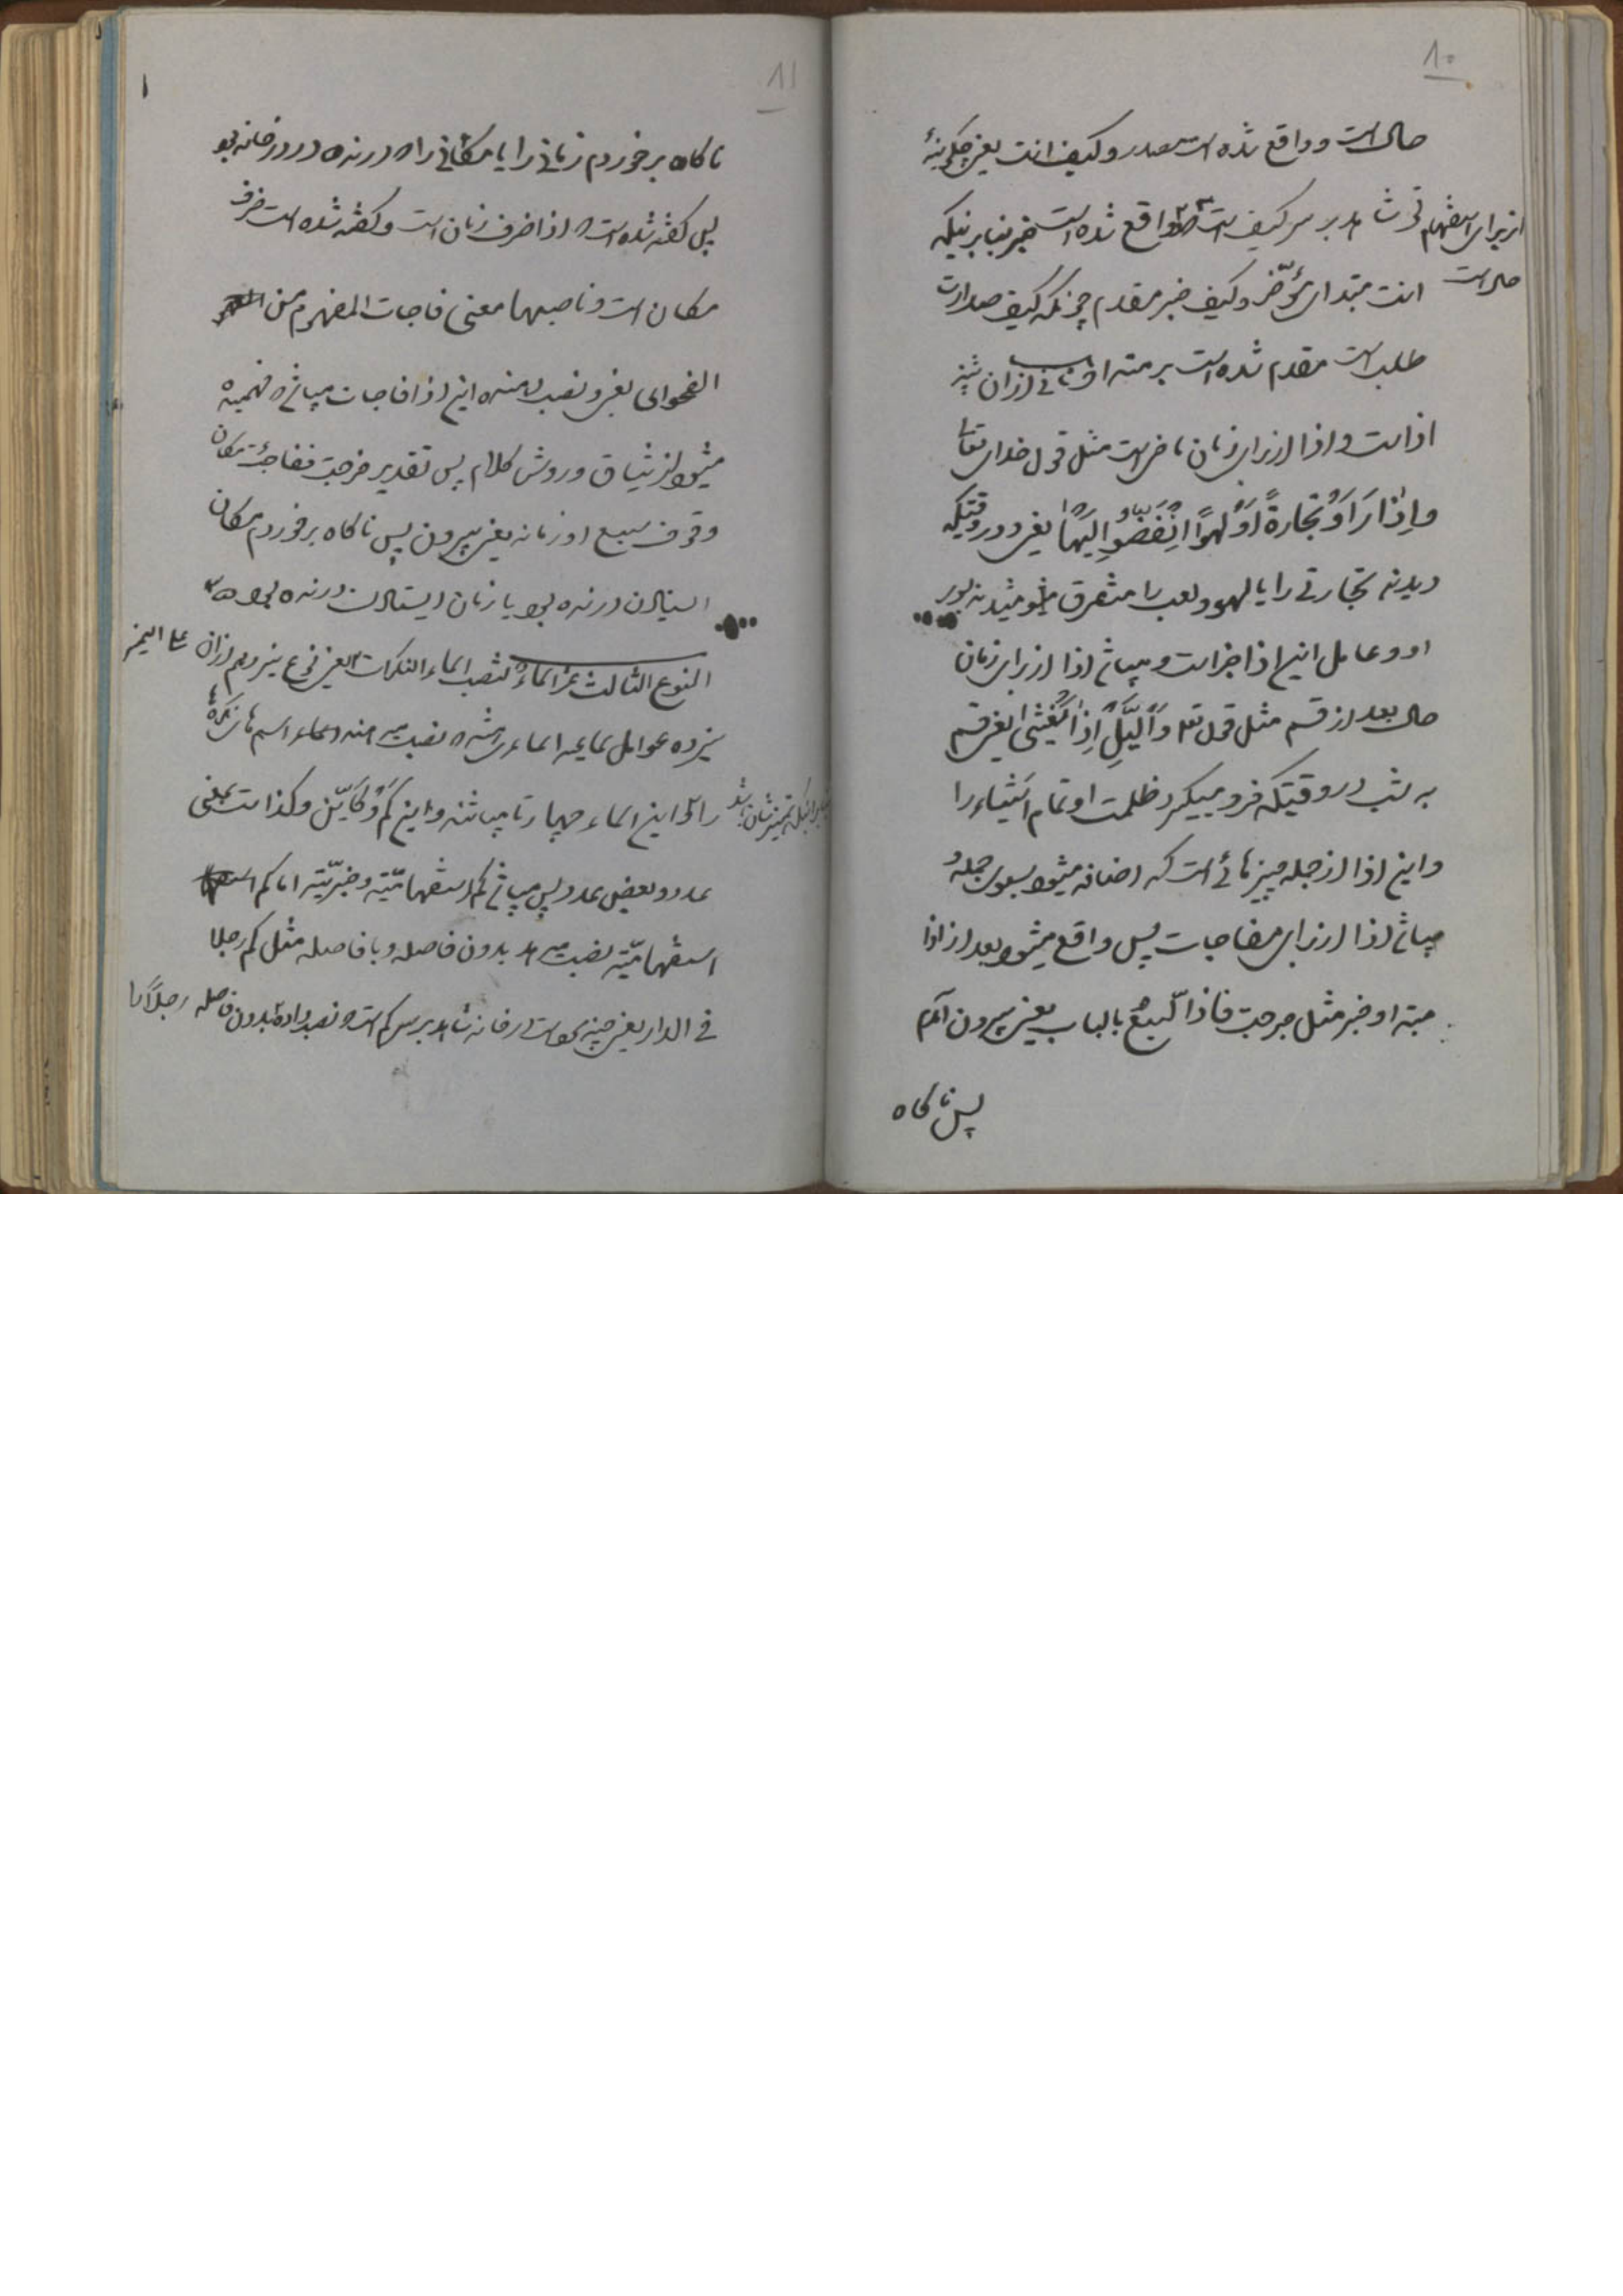 ۱۰
حال است و واقع شده است مصدر و کیف انت یعنی چگونهٔ
از برای استفهام تی شاهد بر سر کیف است که واقع شده است خبر بنابر اینکه
حال است
انت مبتدای مؤخّر و کیف خبر مقدم چونکه کیف صدارت
طلب است مقدم شده است بر مبتدا و ثانی از آن نیز
اذا است و اذا از برای زمان ماضی است مثل قول خدای تعالی
وَاِذٰا رَاَوْ تِجٰارَةً اَوْ لَهْوًا اِنْفَضُّوا اِلَیْهٰا یعنی و در وقتیکه
دیدند تجارتی را یا لهو و لعب را متفرق میشوند بسوی
او و عامل این اذا جزا است و میباشد اذا از برای زمان
حال بعد از قسم مثل قول تعالی وَاللَّیْلِ اِذٰا یَغْشٰی یعنی قسم
به شب در وقتیکه فرو میگیرد ظلمت او تمام اشیاء را
و این اذا از جمله چیزهائی است که اضافه میشود بسوی جمله و
میباشد اذا از برای مفاجات پس واقع میشود بعد از اذا
مبتدا و خبر مثل خرجت فاذا السّبع بالباب یعنی بیرون آمدم
پس ناگاه
۱۱
ناگاه برخوردم زمانی را یا مکانی را که درنده در در خانه بود
پس گفته شده است که اذا ظرف زمان است و گفته شده است ظرف
مکان است و ناصبها معنی فاجات المفهوم من
الفحوای یعنی و نصب دهنده این اذا فاجات میباشد که فهمیده
میشود از سیاق و روش کلام پس تقدیر خرجت ففاجئت مکان
وقوف سبع او زمانه یعنی بیرون پس ناگاه برخوردم مکان
ایستادن درنده بود یا زمان ایستادن درنده بود
النوع الثالث عشر اسماء تنصب اسماء النکرات یعنی نوع سیزدهم از آن علی التمیز
سیزده عوامل سماعیه اسماءی هستند که نصب میدهند اسماء اسم های نکرهٔ
را که این اسماء چهار تا میباشند و این کم و کَاَیّن و کذا است بمعنی
بنابر اینکه تمیزشان باشد
عدد و بعض عدد پس میباشد کم استفهامیّه و خبریّه اما کم
استفهامیّه نصب میدهد بدون فاصله و با فاصله مثل کم رجلا
فی الدار یعنی چند نفر است در خانه شاهد بر سر کم است که نصب داده بدون فاصله رجلاً را